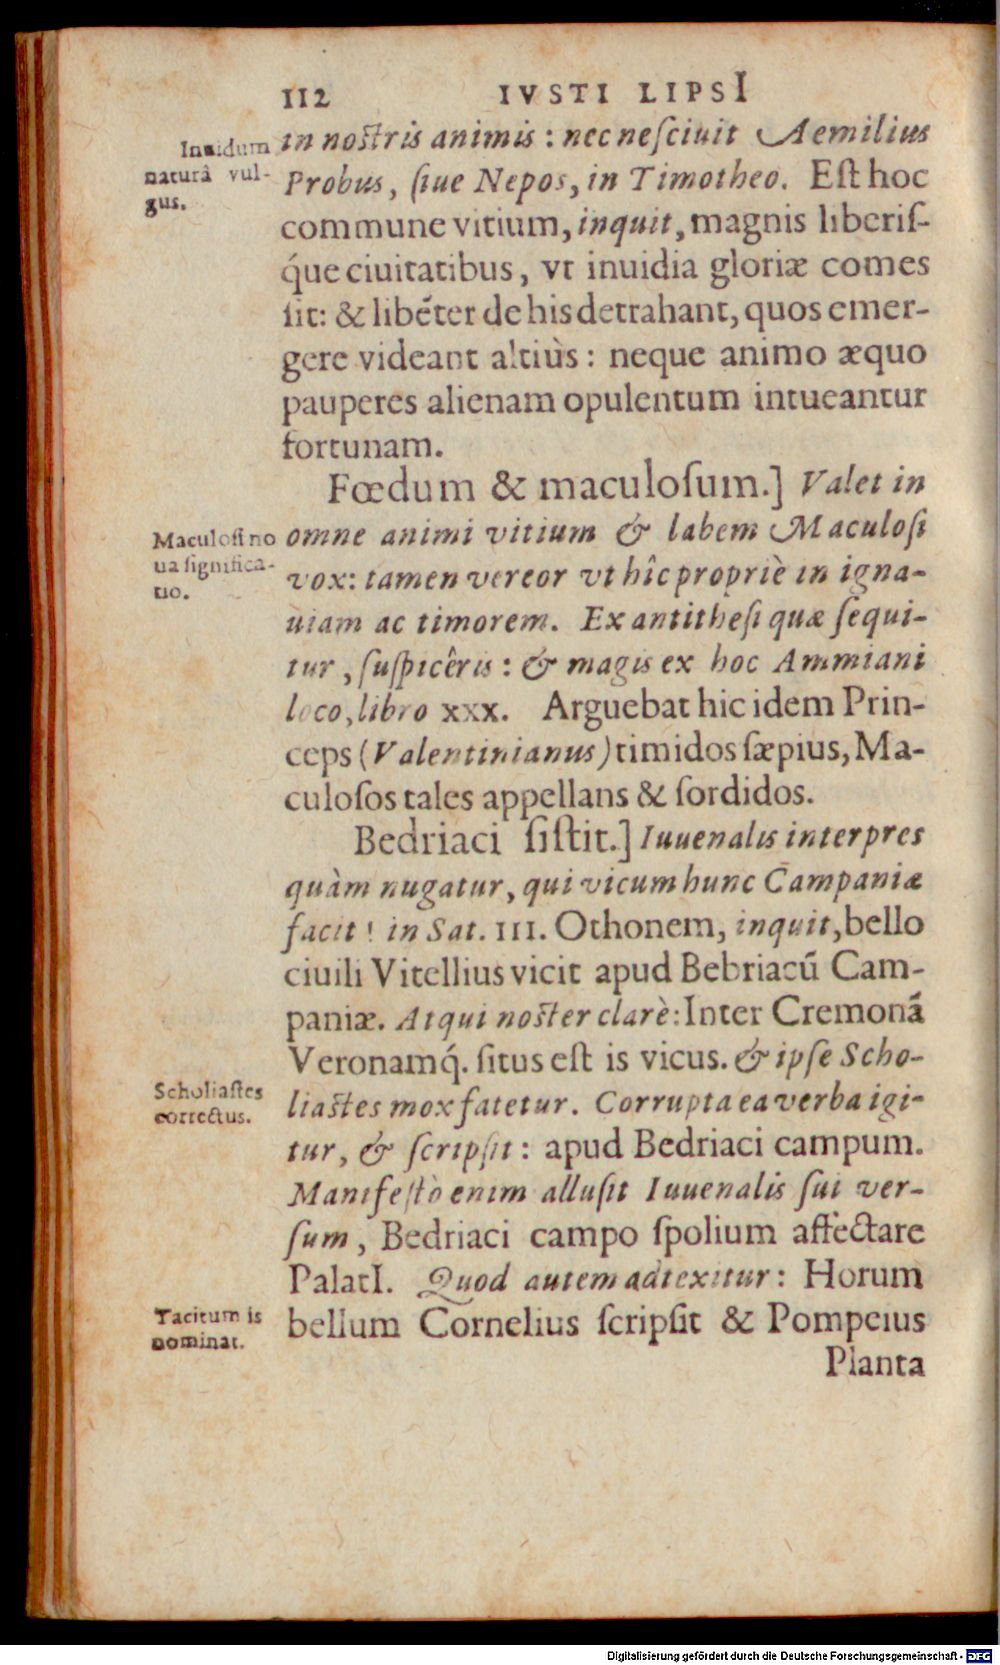 112 IVSTI LIPSI
Inuidum
naturâ vul-
gus.
in nostris animis : nec nesciuit Aemilius
Probus, siue Nepos, in Timotheo. Est hoc
commune vitium, inquit, magnis liberiſ-
q́ue ciuitatibus, vt inuidia gloriæ comes
ſit: & libẽter de his detrahant, quos emer-
gere videant altiùs : neque animo æquo
pauperes alienam opulentum intueantur
fortunam.
Fœdum & maculoſum.] Valet in
Maculoſi no
ua ſignifica-
tio.
omne animi vitium & labem Maculoſi
vox: tamen vereor vt hîc propriè in igna-
uiam ac timorem. Ex antitheſi quæ ſequi-
tur, ſuſpicêris : & magis ex hoc Ammiani
loco, libro xxx. Arguebat hic idem Prin-
ceps (Valentinianus) timidos ſæpius, Ma-
culoſos tales appellans & ſordidos.
Bedriaci ſiſtit.] Iuuenalis interpres
quàm nugatur, qui vicum hunc Campaniæ
facit ! in Sat. III. Othonem, inquit, bello
ciuili Vitellius vicit apud Bebriacũ Cam-
paniæ. Atqui noſter clarè: Inter Cremonã
Veronamq́. ſitus eſt is vicus. & ipſe Scho-
Scholiaſtes
correctus.
liaſtes mox fatetur. Corrupta ea verba igi-
tur, & ſcripſit : apud Bedriaci campum.
Manifeſtò enim alluſit Iuuenalis ſui ver-
ſum, Bedriaci campo ſpolium affectare
PalatI. Quod autem adtexitur : Horum
Tacitum is
nominat.
bellum Cornelius ſcripſit & Pompeius
Planta
Digitalisierung gefördert durch die Deutsche Forschungsgemeinschaft - DFG